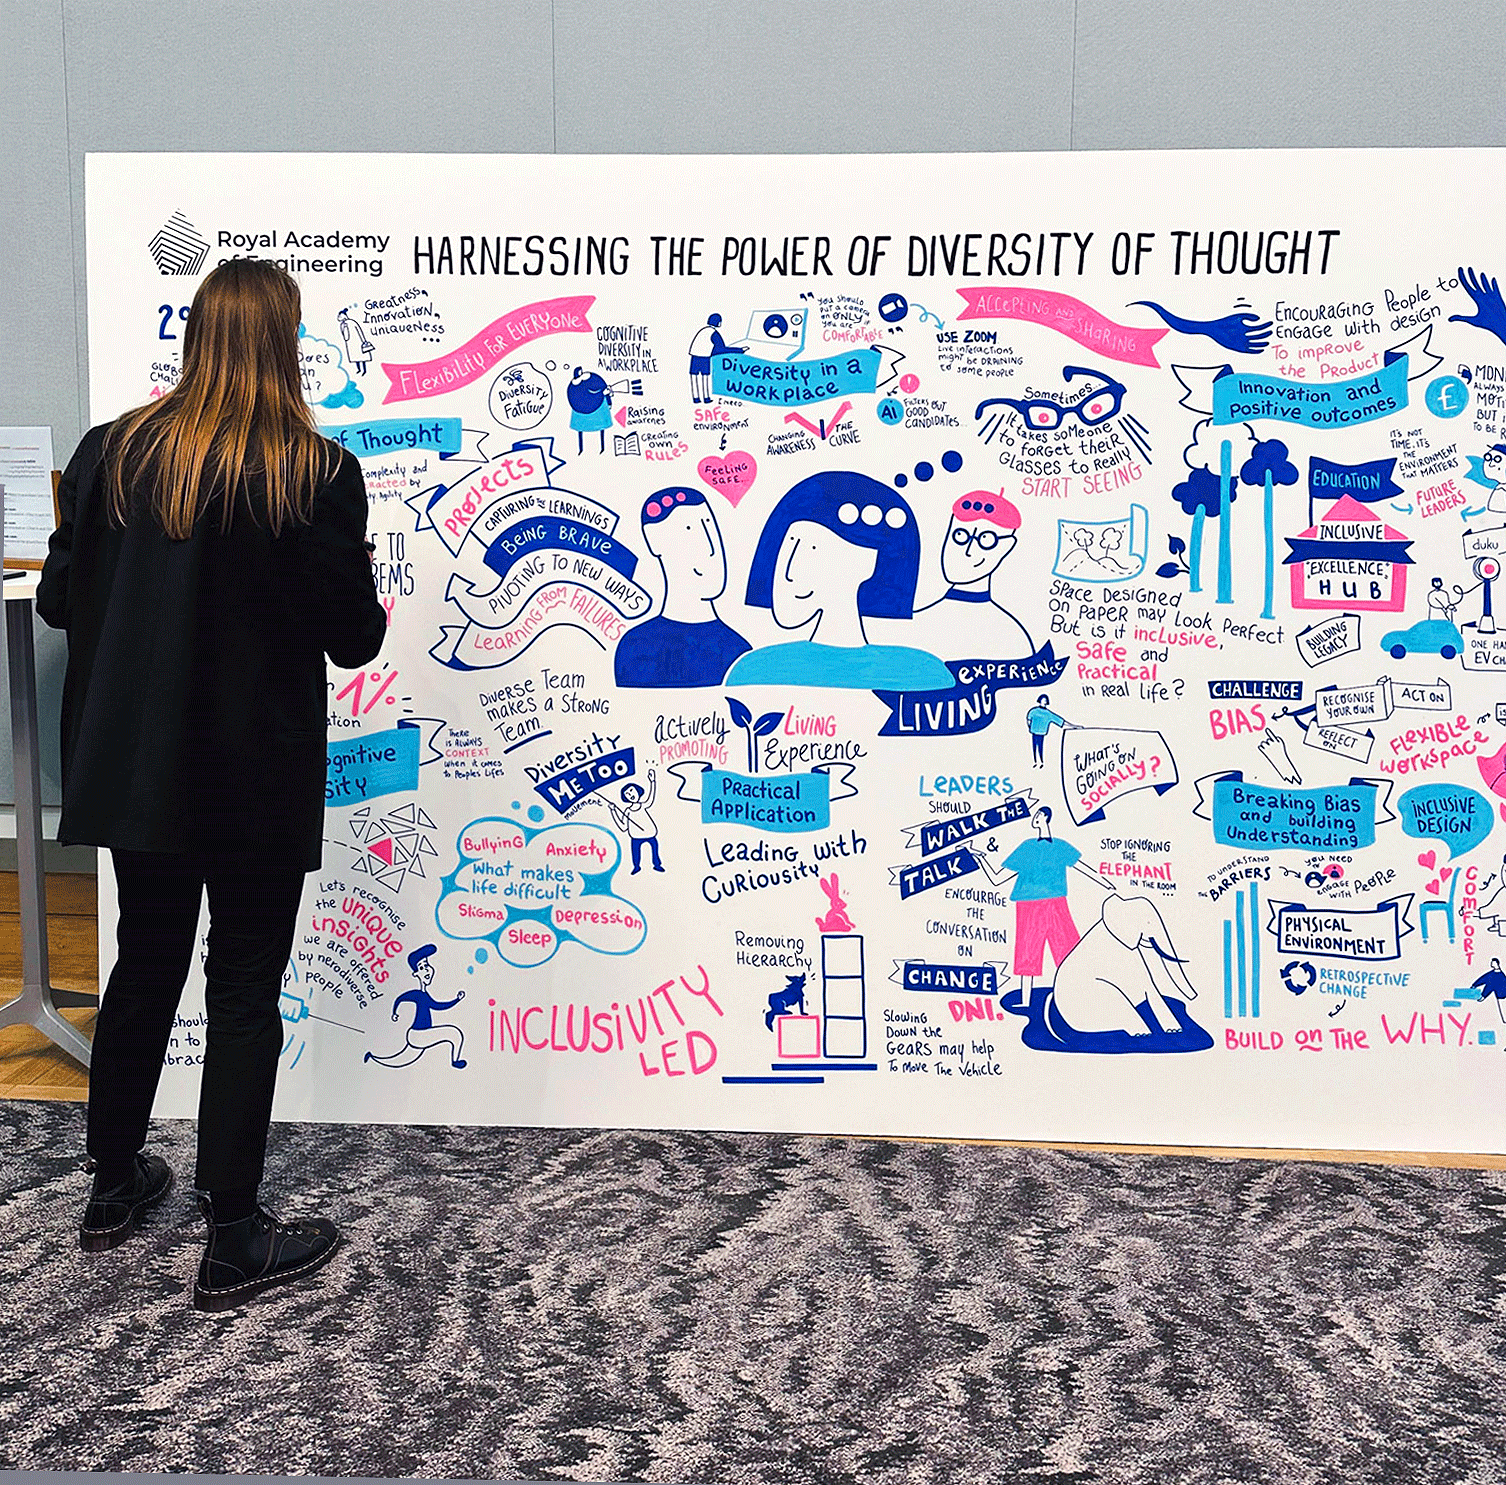 Royal Academy
of Engineering
HARNESSING THE POWER OF DIVERSITY OF THOUGHT
Greatness,
Innovation,
uniqueness
...
Flexibility for EVERYONE
COGNITIVE
DIVERSITY IN
A WORKPLACE
DIVERSITY
FATIGUE
Raising
awarenes
creating
own
RULES
"You should
put a camera
on ONLY if
you are
COMFORTABLE"
Diversity in a
workplace
USE ZOOM
Live interactions
might be DRAINING
to some people
I need
SAFE
environment
CHANGING
AWARENESS
THE
CURVE
AI
FILTERS OUT
GOOD
CANDIDATES...
Feeling
SAFE...
ACCEPTING AND SHARING
Sometimes...
It takes someone
to forget their
GLASSES to Really
START SEEING
ENCOURAGING PEOPLE to
ENGAGE with design
To improve
the Product
Innovation and
Positive outcomes
£
IT'S NOT
TIME, IT'S
THE
ENVIRONMENT
THAT MATTERS
FUTURE
LEADERS
EDUCATION
INCLUSIVE
"EXCELLENCE"
HUB
duku
BUILDING
LEGACY
of Thought
Complexity and
PROJECTS
CAPTURING THE LEARNINGS
BEING BRAVE
PIVOTING TO NEW WAYS
LEARNING FROM FAILURES
SPACE DESIGNED
ON PAPER may look PERFECT
But is it inclusive,
Safe and
Practical
in real life?
LIVING EXPERIENCE
1%
Diverse Team
makes a STRONG
Team.
There
is ALWAYS
CONTEXT
when it comes
to Peoples Lifes
Diversity
ME TOO
movement
actively
PROMOTING
LIVING
Experience
Practical
Application
Leading with
Curiousity
WHAT'S
GOING ON
SOCIALLY?
LEADERS
SHOULD
WALK THE
&
TALK
ENCOURAGE
THE
CONVERSATION
ON
CHANGE
DNI.
Slowing
Down the
Gears may help
to move the vehicle
STOP IGNORING
THE
ELEPHANT
IN THE ROOM
...
CHALLENGE
BIAS
RECOGNISE
YOUR OWN
ACT ON
REFLECT
ON
FLEXIBLE
WORKSPACE
Breaking Bias
and building
Understanding
INCLUSIVE
DESIGN
TO UNDERSTAND
THE BARRIERS
you need
to
engage
with PEOPLE
PHYSICAL
ENVIRONMENT
COMFORT
RETROSPECTIVE
CHANGE
BUILD on THE WHY.
Bullying
Anxiety
What makes
life difficult
Stigma
Depression
Sleep
Let's recognise
the unique
insights
we are offered
by nerodiverse
people
INCLUSIVITY
LED
Removing
Hierarchy